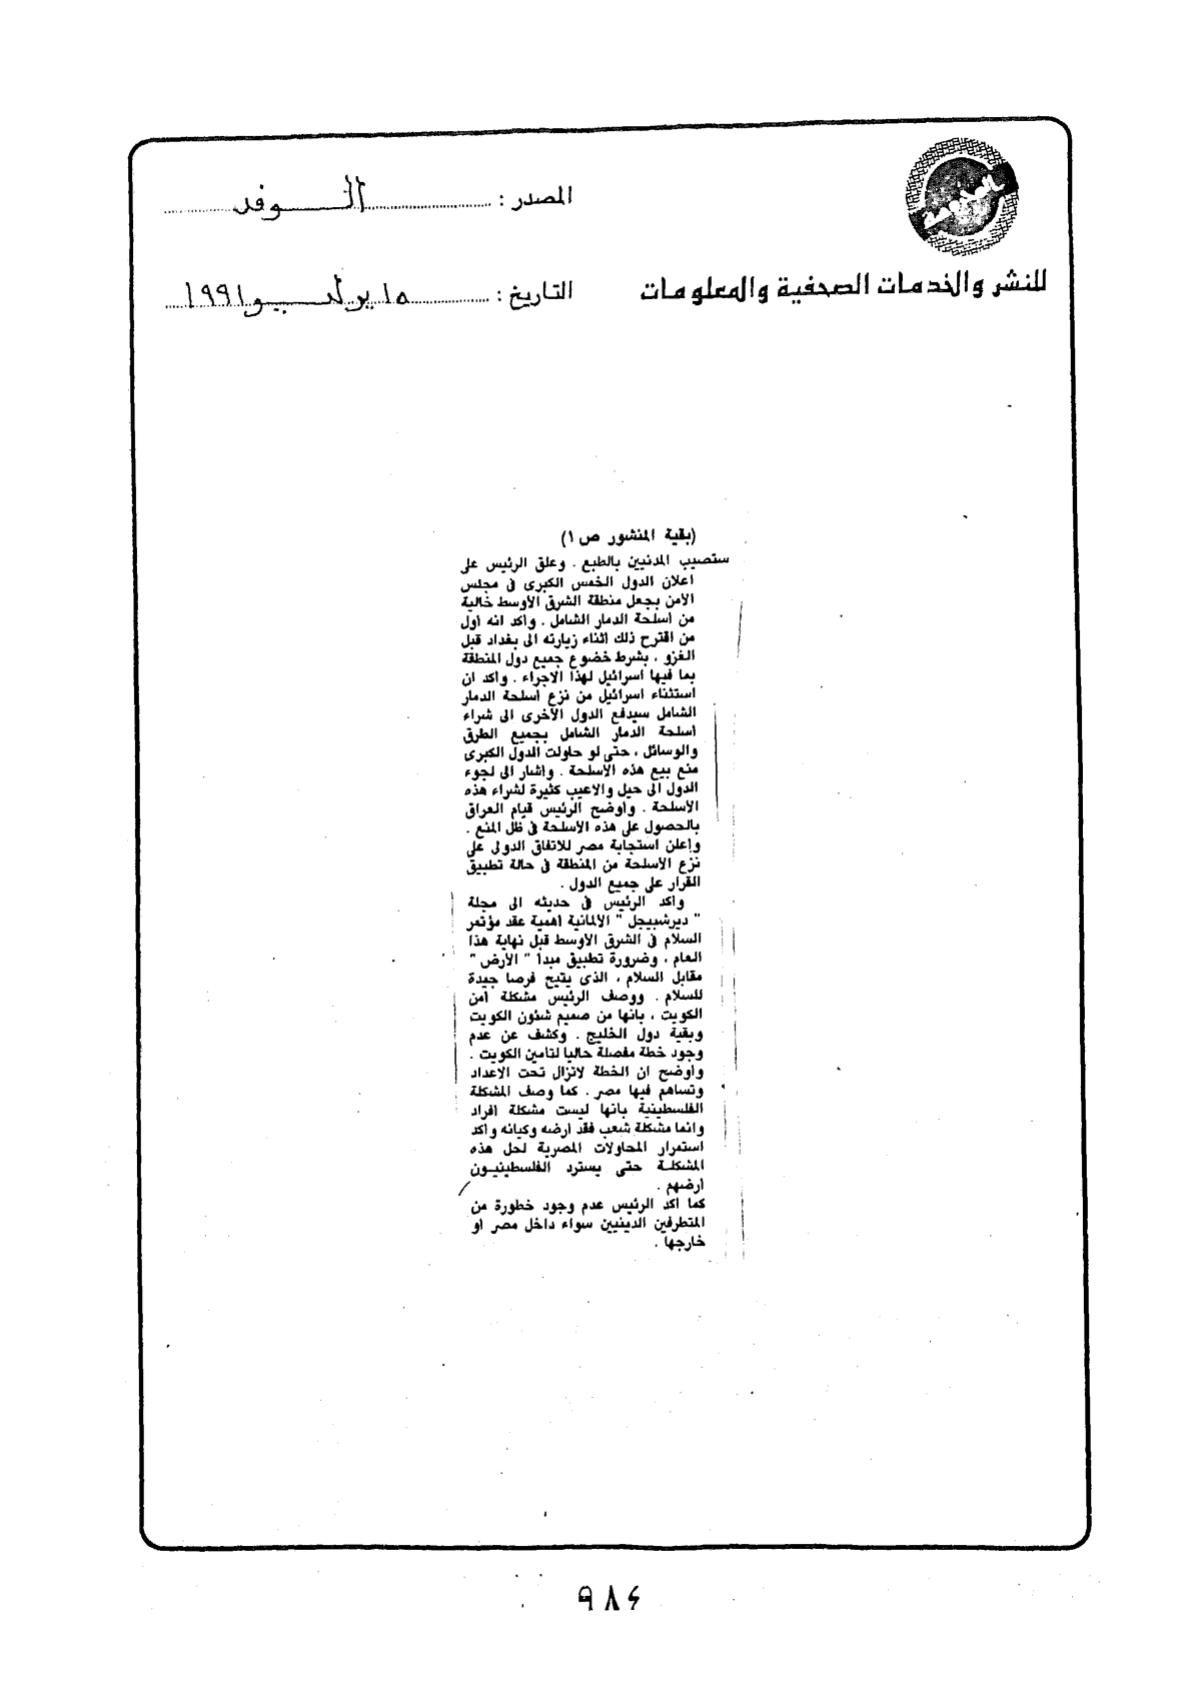 المصدر : الوفد
التاريخ : ١٥ يوليو ١٩٩١
للنشر والخدمات الصحفية والمعلومات
(بقية المنشور ص ١)
ستصيب المدنيين بالطبع . وعلق الرئيس على
اعلان الدول الخمس الكبرى فى مجلس
الأمن بجعل منطقة الشرق الأوسط خالية
من أسلحة الدمار الشامل . وأكد انه أول
من اقترح ذلك اثناء زيارته الى بغداد قبل
الغزو ، بشرط خضوع جميع دول المنطقة
بما فيها اسرائيل لهذا الاجراء . وأكد ان
استثناء اسرائيل من نزع اسلحة الدمار
الشامل سيدفع الدول الأخرى الى شراء
اسلحة الدمار الشامل بجميع الطرق
والوسائل ، حتى لو حاولت الدول الكبرى
منع بيع هذه الأسلحة . وأشار الى لجوء
الدول الى حيل والاعيب كثيرة لشراء هذه
الأسلحة . وأوضح الرئيس قيام العراق
بالحصول على هذه الأسلحة فى ظل المنع .
وأعلن استجابة مصر للاتفاق الدولى على
نزع الأسلحة من المنطقة فى حالة تطبيق
القرار على جميع الدول .
وأكد الرئيس فى حديثه الى مجلة
" ديرشبيجل " الألمانية أهمية عقد مؤتمر
السلام فى الشرق الأوسط قبل نهاية هذا
العام ، وضرورة تطبيق مبدأ " الأرض "
مقابل السلام ، الذى يتيح فرصا جيدة
للسلام . ووصف الرئيس مشكلة أمن
الكويت ، بأنها من صميم شئون الكويت
وبقية دول الخليج . وكشف عن عدم
وجود خطة مفصلة حاليا لتأمين الكويت .
وأوضح ان الخطة لاتزال تحت الاعداد
وتساهم فيها مصر . كما وصف المشكلة
الفلسطينية بأنها ليست مشكلة افراد
وانما مشكلة شعب فقد أرضه وكيانه وأكد
استمرار المحاولات المصرية لحل هذه
المشكلة حتى يسترد الفلسطينيون
ارضهم .
كما اكد الرئيس عدم وجود خطورة من
المتطرفين الدينيين سواء داخل مصر أو
خارجها .
٩٨٤